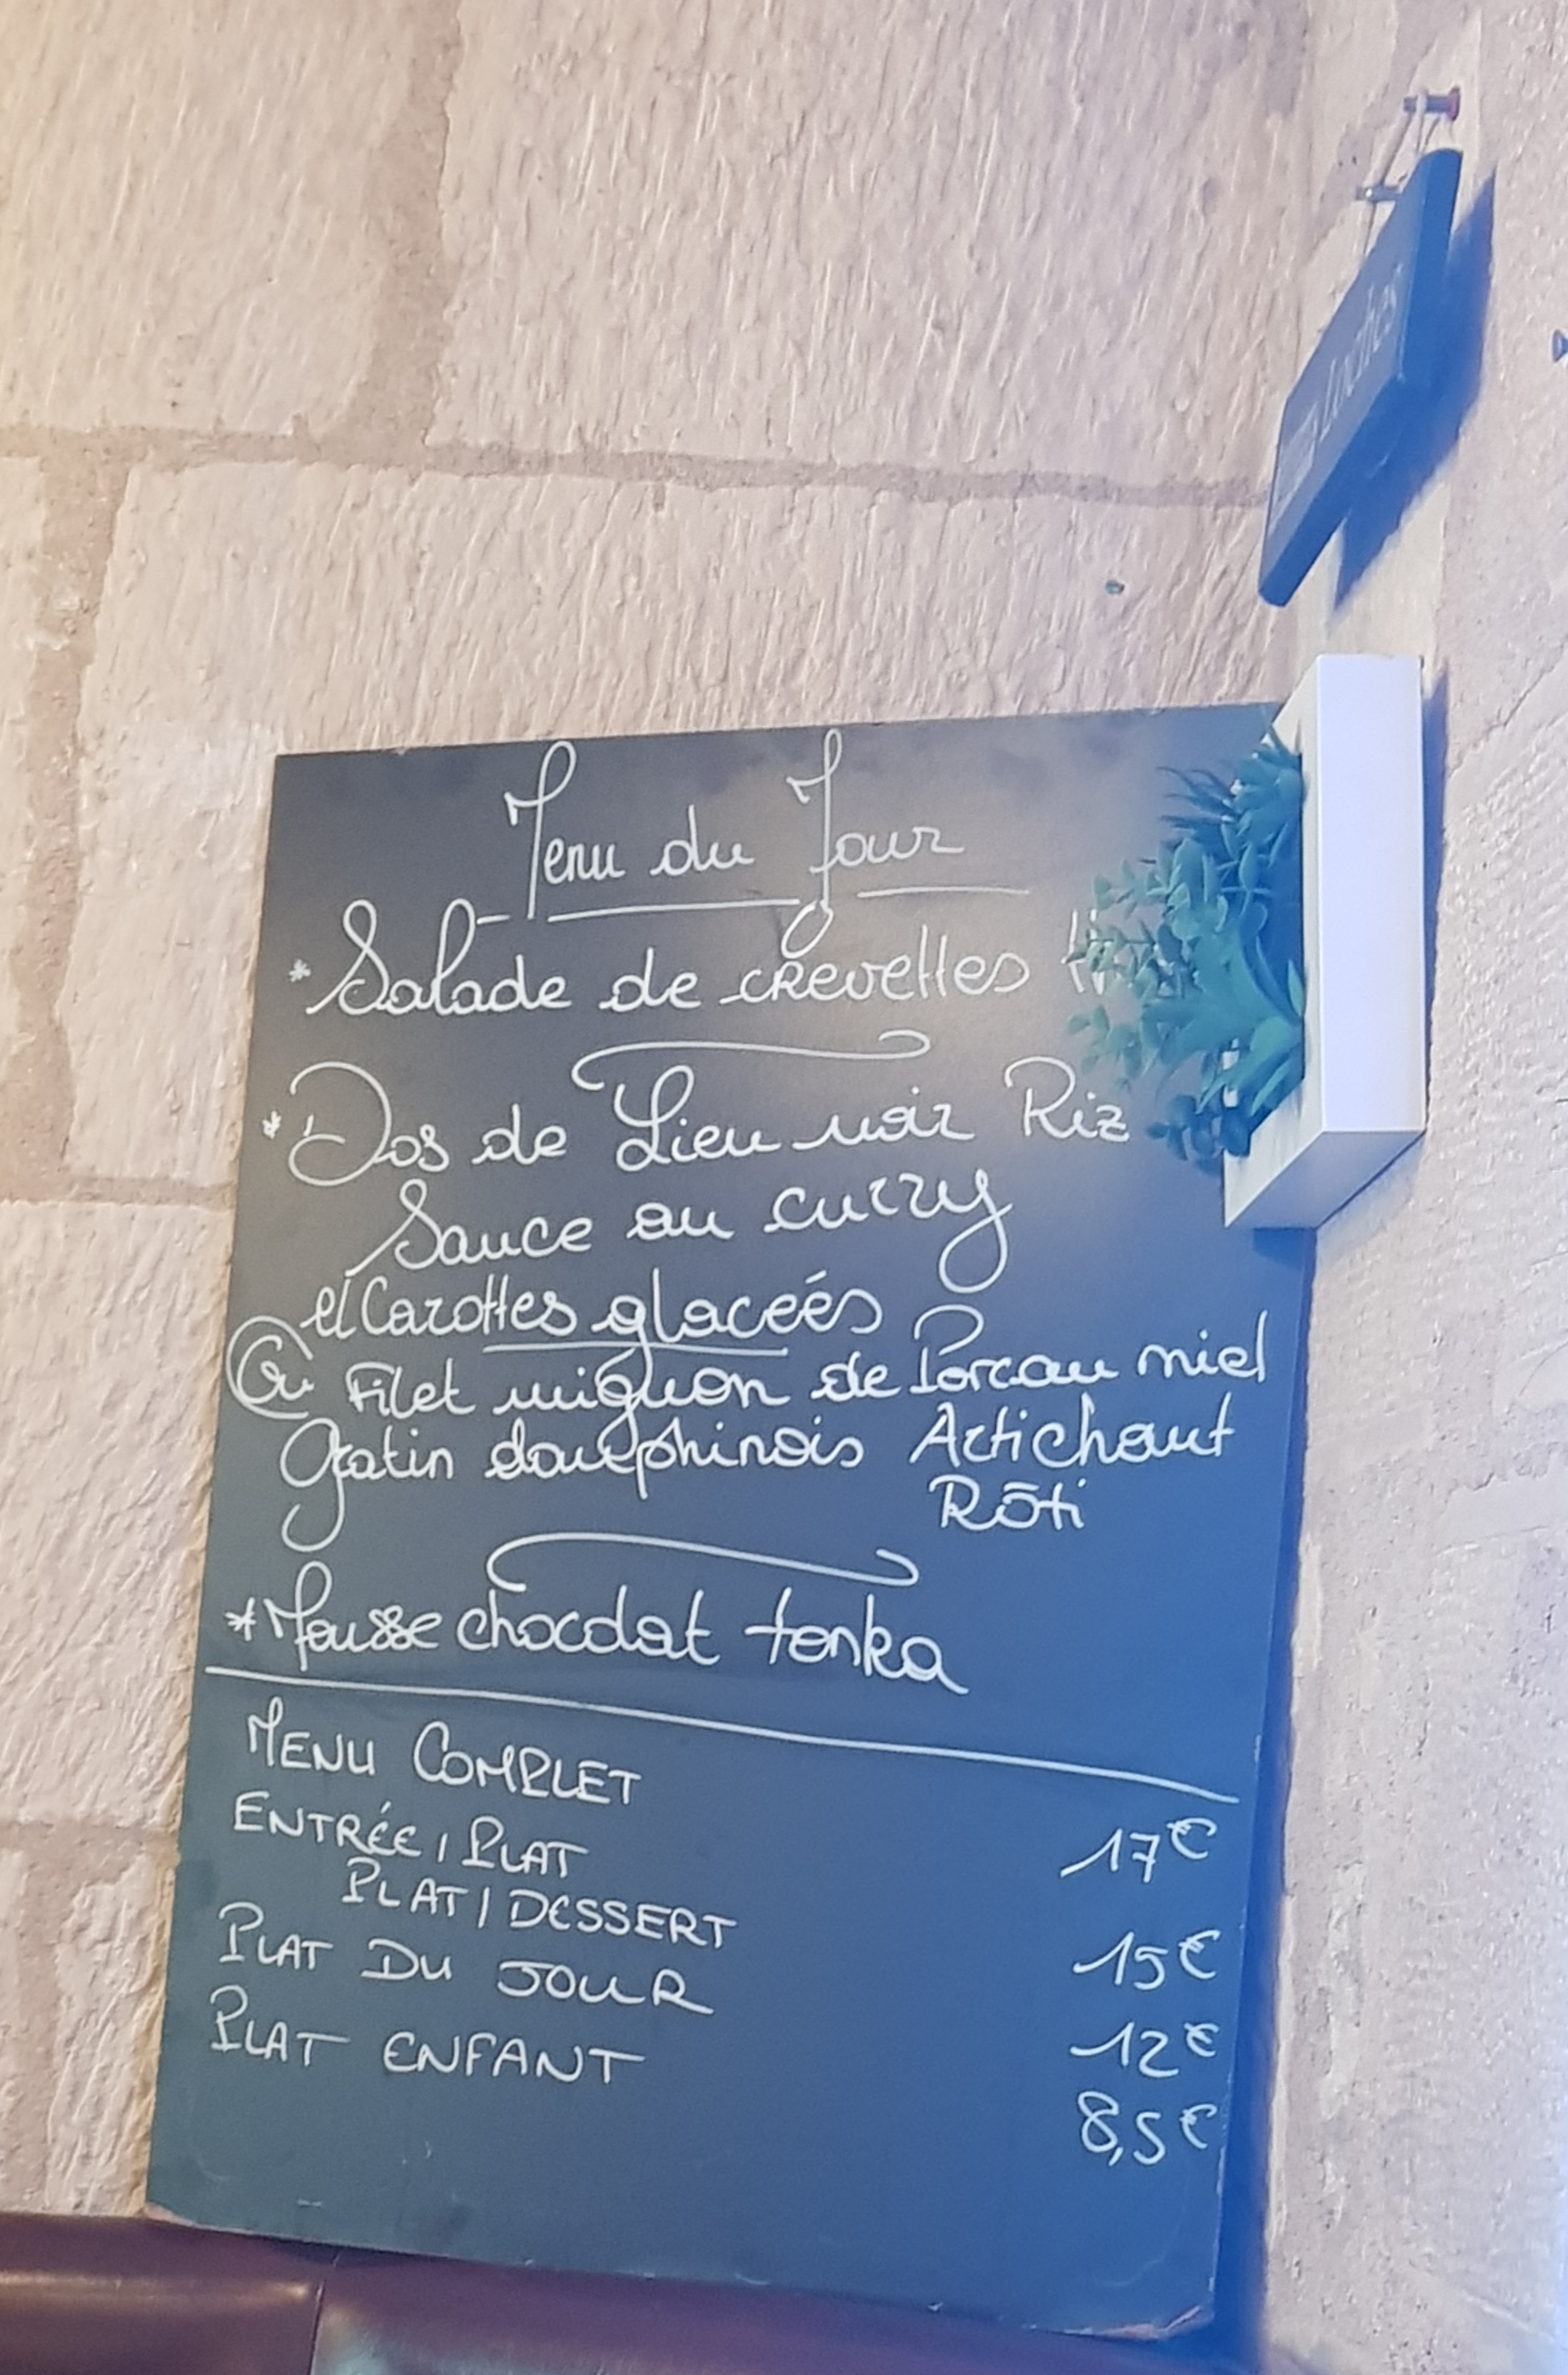 Menu du Jour
* Salade de crevettes
* Dos de Lieu noir Riz
Sauce au curry
et Carottes glaceés
Ou Filet mignon de Porc au miel
Gratin dauphinois Artichaut
Rōti
* Mousse chocolat tonka
MENU COMPLET
17€
ENTRÉE / PLAT
PLAT / DESSERT
15€
PLAT DU JOUR
12€
PLAT ENFANT
8,5€